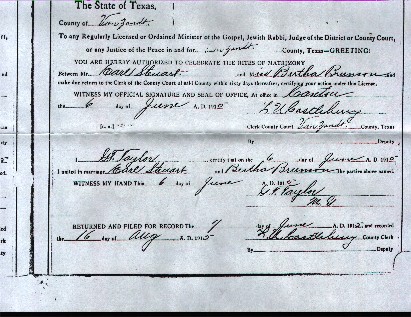 The State of Texas,
County of Van Zandt.
To any Regularly Licensed or Ordained Minister of the Gospel, Jewish Rabbi, Judge of the District or County Court,
or any Justice of the Peace in and for Van Zandt County, Texas—GREETING:
YOU ARE HEREBY AUTHORIZED TO CELEBRATE THE RITES OF MATRIMONY
Between Mr. Earl Stewart and Miss Bertha Brunson and
make due return to the Clerk of the County Court of said County within sixty days thereafter, certifying your action under this License.
WITNESS MY OFFICIAL SIGNATURE AND SEAL OF OFFICE, At office in Canton
the 6 day of June A. D. 191
Clerk County Court, Van Zandt County, Texas
By Deputy
I, Taylor certify that on the 6 day of June A. D. 191
I united in marriage Earl Stewart and Bertha Brunson The parties above named.
WITNESS MY HAND This 6 day of June A. D. 191
Taylor
M. G.
RETURNED AND FILED FOR RECORD The 7 day of June A. D. 191 and recorded
the 16 day of Aug A. D. 191
County Clerk
By Deputy